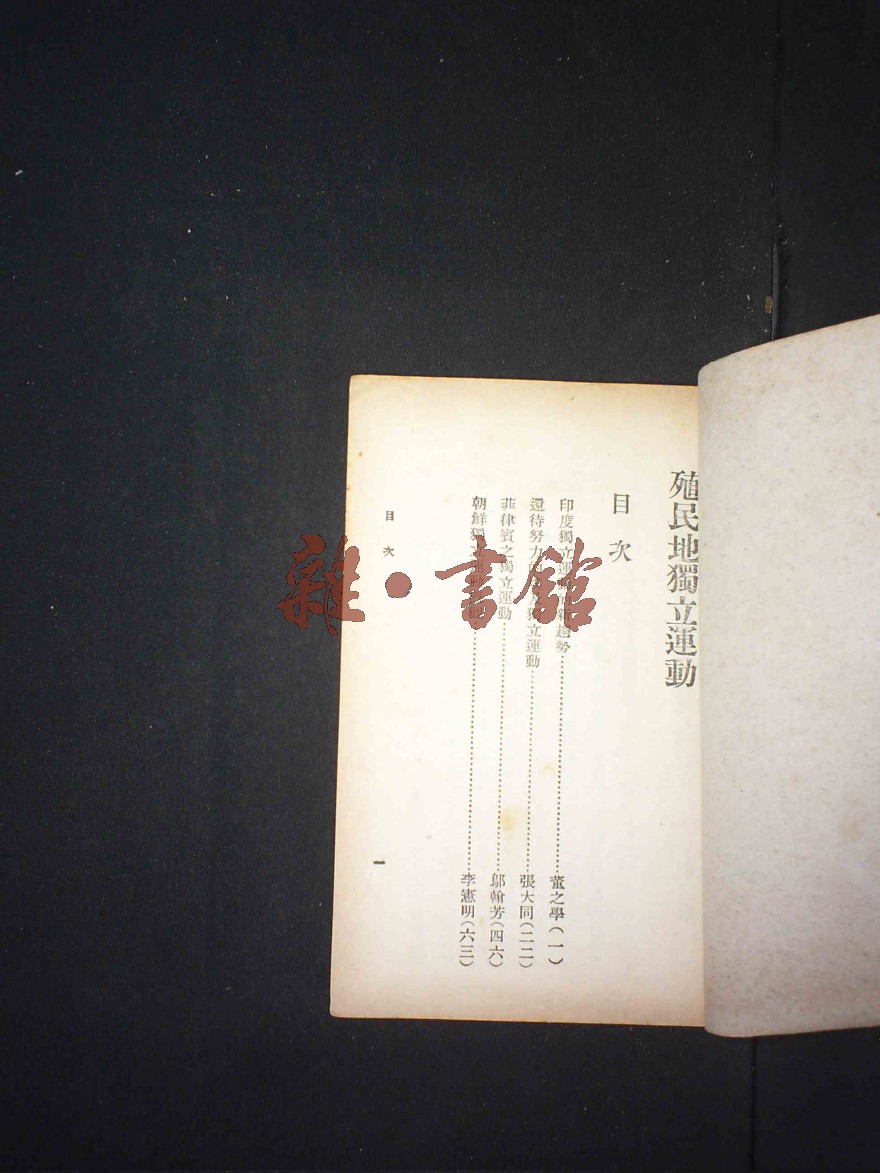 殖民地獨立運動
目次
印度獨立運 新趨勢……董之學(一)
還待努力 獨立運動……張大同(二二)
菲律賓之獨立運動……鄔翰芳(四六)
朝鮮獨立運動……李憲明(六三)
目次
一
雜·書館